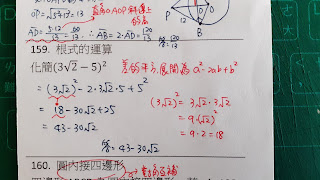 OP = √(5²+12²) = 13
直角△AOP斜邊上的高
P 12 B O
AD = 5·12/13 = 60/13 ∴ AB = 2·AD = 120/13
答: 120/13
159. 根式的運算
化簡(3√2 − 5)²
差的平方,展開為 a² − 2ab + b²
= (3√2)² − 2·3√2·5 + 5²
= 18 − 30√2 + 25
= 43 − 30√2
(3√2)² = 3√2·3√2
= 9·(√2)²
= 9·2 = 18
答: 43 − 30√2
160. 圓內接四邊形
對角互補